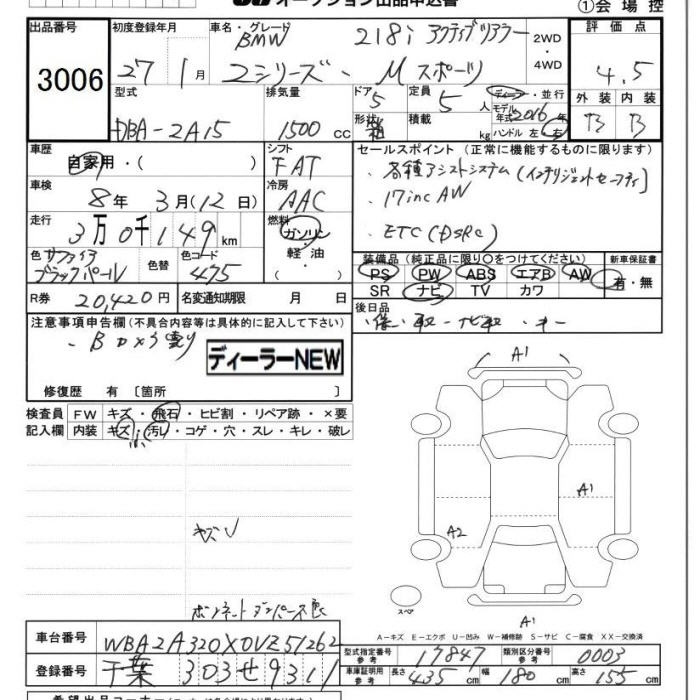 オークション出品申込書
①会場控
出品番号 3006
初度登録年月 27年1月
車名・グレード BMW 218i アクティブツアラー
2シリーズ・Mスポーツ
2WD・4WD
評価点 4.5
外装 内装
B B
型式 DBA-2A15
排気量 1500cc
ドア 5
形状
定員 5人
積載 kg
ディーラー・並行
モデル年式 2016年
ハンドル 左・右
車歴 自家用・( )
シフト FAT
車検 8年3月(12日)
冷房 AAC
走行 3万0千149km
燃料 ガソリン・軽油・
色 サファイアブラックパール
色替
色コード 475
R券 20,420円
名変通知期限 月 日
セールスポイント(正常に機能するものに限ります)
・各種アシストシステム(インテリジェントセーフティ)
・17inc AW
・ETC(DSRC)
装備品(純正品に限り○をつけてください)
PS PW ABS エアB AW
SR ナビ TV カワ
新車保証書
有・無
後日品
・保・取・ナビ取・キー
注意事項申告欄(不具合内容等は具体的に記入して下さい)
ディーラーNEW
修復歴 有〔箇所 〕
検査員記入欄
FW キズ・飛石・ヒビ割・リペア跡・×要
内装 キズ・汚レ・コゲ・穴・スレ・キレ・破レ
キズU
ボンネットダンパース
A1
A1
A2
A1
スペア
A-キズ E-エクボ U-凹み W-補修跡 S-サビ C-腐食 XX-交換済
車台番号 WBA2A320X0VZ51262
登録番号 千葉 303 せ 9311
型式指定番号 参考 17847
類別区分番号 参考 0003
車庫証明用 参考 長さ 435cm 幅 180cm 高さ 155cm